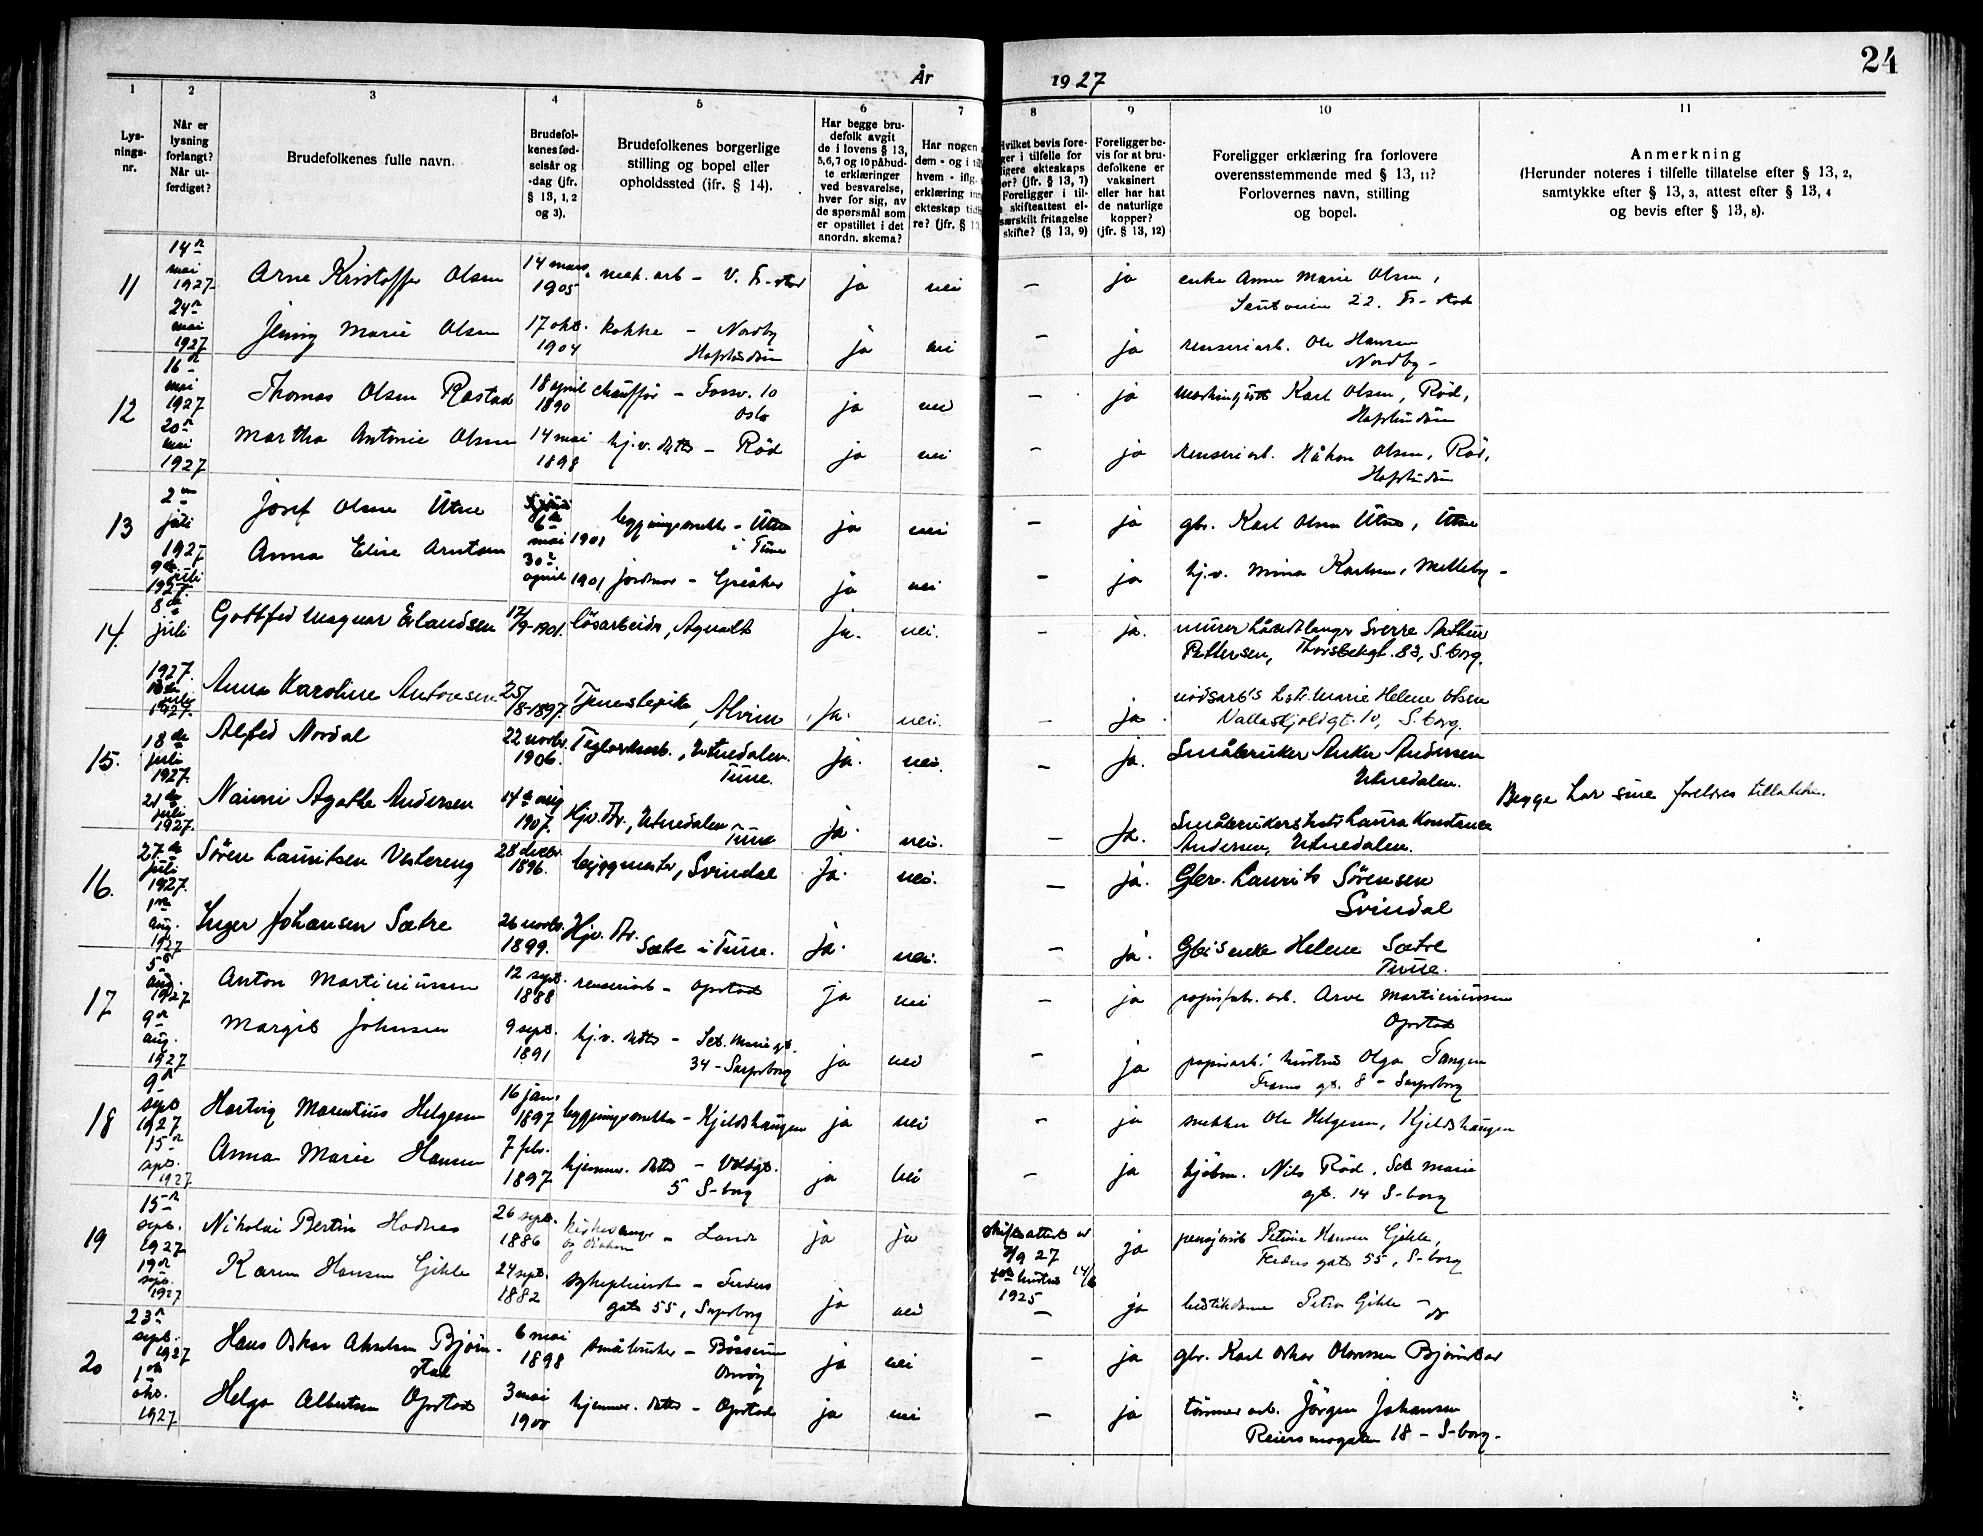 24
År 1927
1 2 3 4 5 6 7 8 9 10 11
Lys-
nings-
nr.
Når er
lysning
forlangt?
Når ut-
ferdiget?
Brudefolkenes fulle navn.
Brudefol-
kenes fød-
selsår og
-dag (jfr.
§ 13, 1, 2
og 3).
Brudefolkenes borgerlige
stilling og bopel eller
opholdssted (ifr. § 14).
Har begge bru-
defolk avgit
de i lovens § 13,
5,6,7 og 10 påbud-
te erklæringer
ved besvarelse,
hver for sig, av
de spørsmål som
er opstillet i det
anordn. skema?
Har nogen
dem - og i
hvem - iflg.
erklæring
ekteskap
re? (jfr. §
Hvilket bevis fore-
ger i tilfelle for
ligere ekteskaps
(jfr. § 13, 7)
Foreligger i til-
skifteattest el-
særskilt fritagelse
skifte? (§ 13, 9)
Foreligger be-
vis for at bru-
defolkene er
vaksinert
eller har hat
de naturlige
kopper?
(jfr. § 13, 12)
Foreligger erklæring fra forlovere
overensstemmende med § 13, 11?
Forlovernes navn, stilling
og bopel.
Anmerkning
(Herunder noteres i tilfelle tillatelse efter § 13, 2,
samtykke efter § 13, 3, attest efter § 13, 4
og bevis efter § 13, 8).
11 14 mai 1927 Arne Kristoffer Olsen 14 mars 1905 mek. arb - V. Fr-stad ja nei - ja enke Anne Marie Olsen,
22. Fr-stad
24 mai 1927 Jenny Marie Olsen 17 okt. 1904 kokke - Nordby ja nei - ja renseriarb. Ole Hansen
Hafslundsøen Nordby -
12 16 mai 1927 Thomas Olsen Rostad 18 april 1890 chauffør - 10 Oslo ja nei - ja Karl Olsen, Rød,
Hafslundsøen
20 mai 1927 Martha Antonie Olsen 14 mai 1898 hj.v. datter - Rød ja nei - ja renseriarb. Håkon Olsen, Rød,
Hafslundsøen
13 2 juli 1927 Josef Olsen Utne 6 mai 1901 bygningssnekker - Utne i Tune ja nei - ja gbr. Karl Olsen Utne, Utne
9de juli 1927 Anna Elise Arntsen 30 april 1901 jordmor - Greåker ja nei - ja hj.v. Mina Karlsen, Melleby -
14. 8de juli 1927. Gottfred Magnar Erlandsen 12/9-1901. løsarbeider, Agnalt Ja. nei. - ja. murer håndtlanger Sverre Arthur
Pettersen, Thorsbekgt. 83, S.borg.
juli 1927. Anna Karoline Antonsen 25/8-1897. Tjenestepike, Alvim Ja. nei. - ja. nødsarb's hstr. Marie Helene Olsen
Vallaskjoldgt. 10, S.borg.
15. 18de juli 1927. Alfred Nordal 22 novbr. 1906. Teglverksarb., Utnedalen. Tune. Ja. nei. - ja. Småbruker Anker Andersen
Utnedalen.
Begge har sine foreldres tillatelse.
21de juli 1927. Naimi Agathe Andersen 14de aug 1907. Hjv. Dtr., Utnedalen Tune Ja. nei. - Ja. Småbrukers hstr. Laura Konstance
Andersen, Utnedalen.
16. 27de juli 1927. Søren Lauritsen Vestereng 28 decbr. 1896. byggmester, Svindal Ja. nei. - ja. Gbr. Laurits Sørensen
Svindal
1ste aug. 1927 Inger Johansen Sætre 26 novbr. 1899. Hjv. Dtr. Sætre i Tune. Ja. nei. - ja. Gbr's enke Helene Sætre
Tune.
17 5 aug. 1927 Anton Martiniussen 12 sept. 1888 renseriarb - Opstad ja nei - ja papirfabr. arb. Arve Martiniussen
Opstad
9 aug. 1927 Margit Johnsen 9 sept. 1891 hj.v. datter - Sct. Marie gt. ja nei - ja papirarb.' hustru Olga Tangen
34 - Sarpsborg gt. 8 - Sarpsborg
18 9 sept 1927 Hartvig Marentius Helgesen 16 jan. 1897 bygningssnekker - Kjeldshaugen ja nei - ja snekker Ole Helgesen, Kjeldshaugen
15 sept. 1927 Anna Marie Hansen 7 febr. 1897 hjemmev. datter - Voldgt. ja nei - ja Nils Rød, Sct Marie
5 S-borg gt. 14 S-borg
19 15 sept. 1927 Nikolai Bertin Hodnes 26 sept. 1886 kirkesanger - Lande ja ja skifteattest av
/9 27 ja pensjonist Petrine Hansen Gjehle,
hustru 14/6
1925 gate 55, S-borg
19 sept. 1927 Karen Hansen Gjehle 24 sept. 1882 sykepleierske - ja nei - ja Petra Gjehle -
gate 55, Sarpsborg
20 23 sept. 1927 Hans Oskar Akselsen Bjørn- 6 mai 1898 småbruker - ja nei - ja gbr. Karl Oskar Olaussen Bjørnstad
stad
1 okt. 1927 Helga Albertsen Opstad 3 mai 1900 hjemmev. datter - Opstad ja nei - ja tømmerarb. Jörgen Johansen
Reiersmogaten 18 - S-borg -